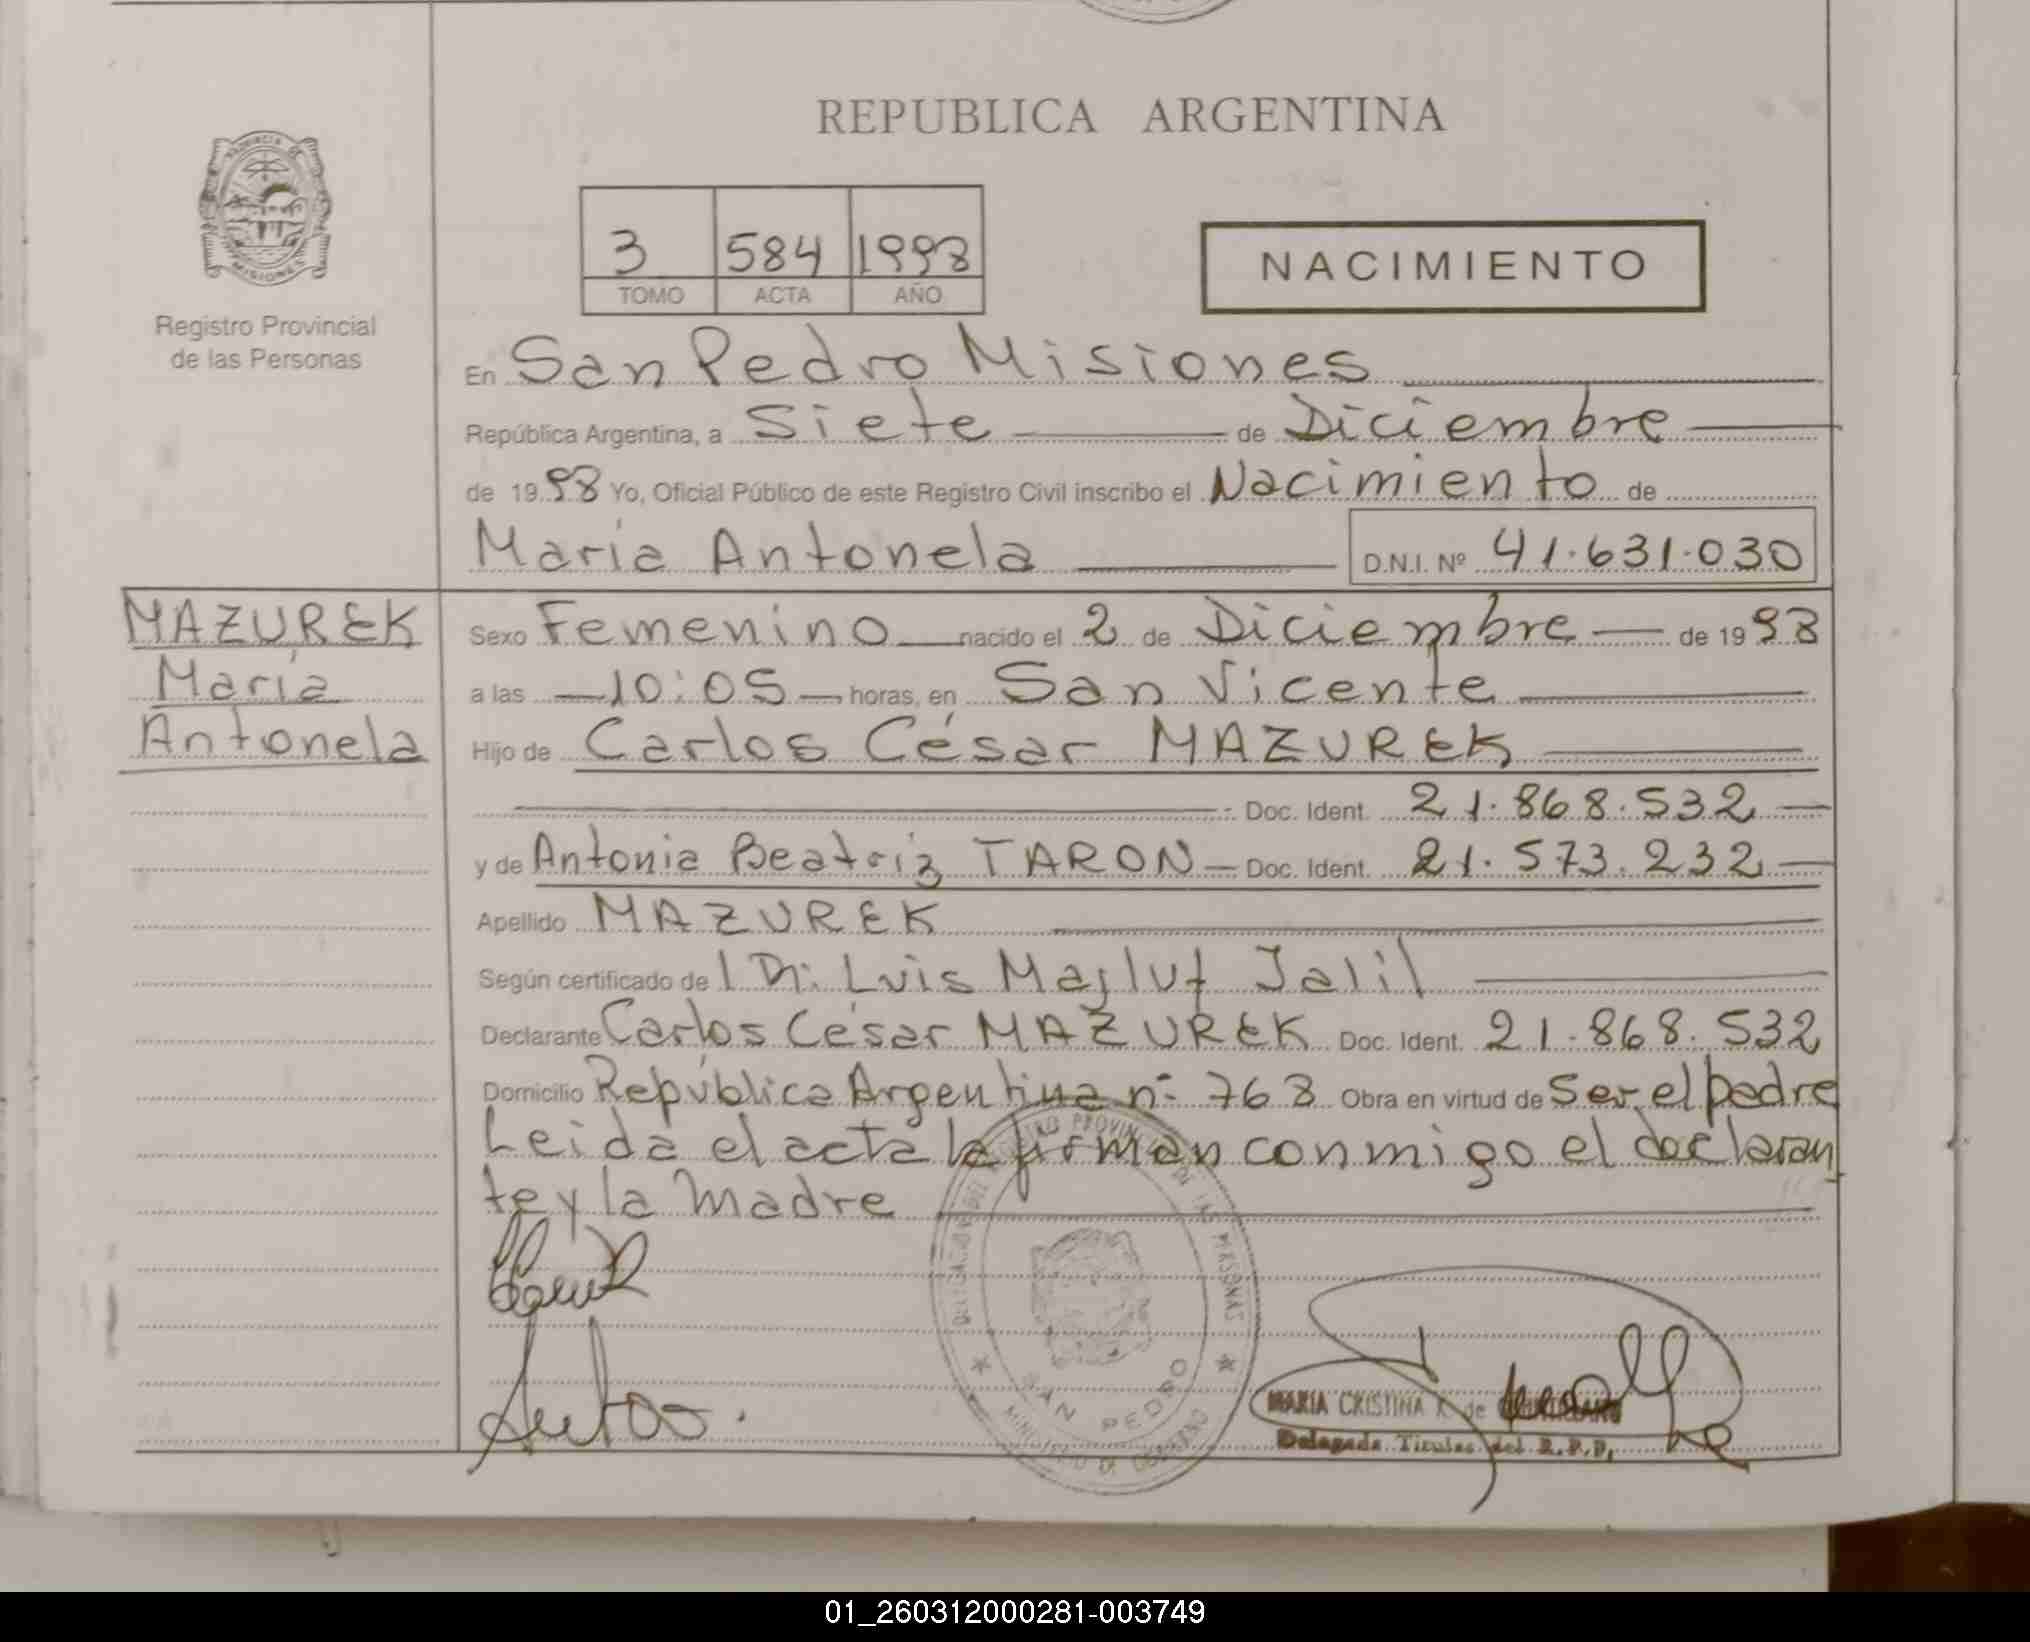 REPUBLICA ARGENTINA
PROVINCIA DE
MISIONES
Registro Provincial
de las Personas
3 584 1998
TOMO ACTA AÑO
NACIMIENTO
En San Pedro Misiones
República Argentina, a Siete de Diciembre
de 1998 Yo, Oficial Público de este Registro Civil inscribo el Nacimiento de
María Antonela D.N.I. Nº 41.631.030
MAZUREK
María
Antonela
Sexo Femenino nacido el 2 de Diciembre de 1998
a las 10:05 horas, en San Vicente
Hijo de Carlos César MAZUREK
Doc. Ident. 21.868.532
y de Antonia Beatriz TARON Doc. Ident. 21.573.232
Apellido MAZUREK
Según certificado de l Dr: Luis Majluf Jalil
Declarante Carlos César MAZUREK Doc. Ident. 21.868.532
Domicilio República Argentina nº 768 Obra en virtud de Ser el padre
Leida el acta la firman conmigo el declaran
te y la madre
DELEGACION DEL REGISTRO PROVINCIAL DE LAS PERSONAS
SAN PEDRO
MINISTERIO DE GOBIERNO
MARIA CRISTINA K. de
Delegada Titular del R.P.P.
01_260312000281-003749